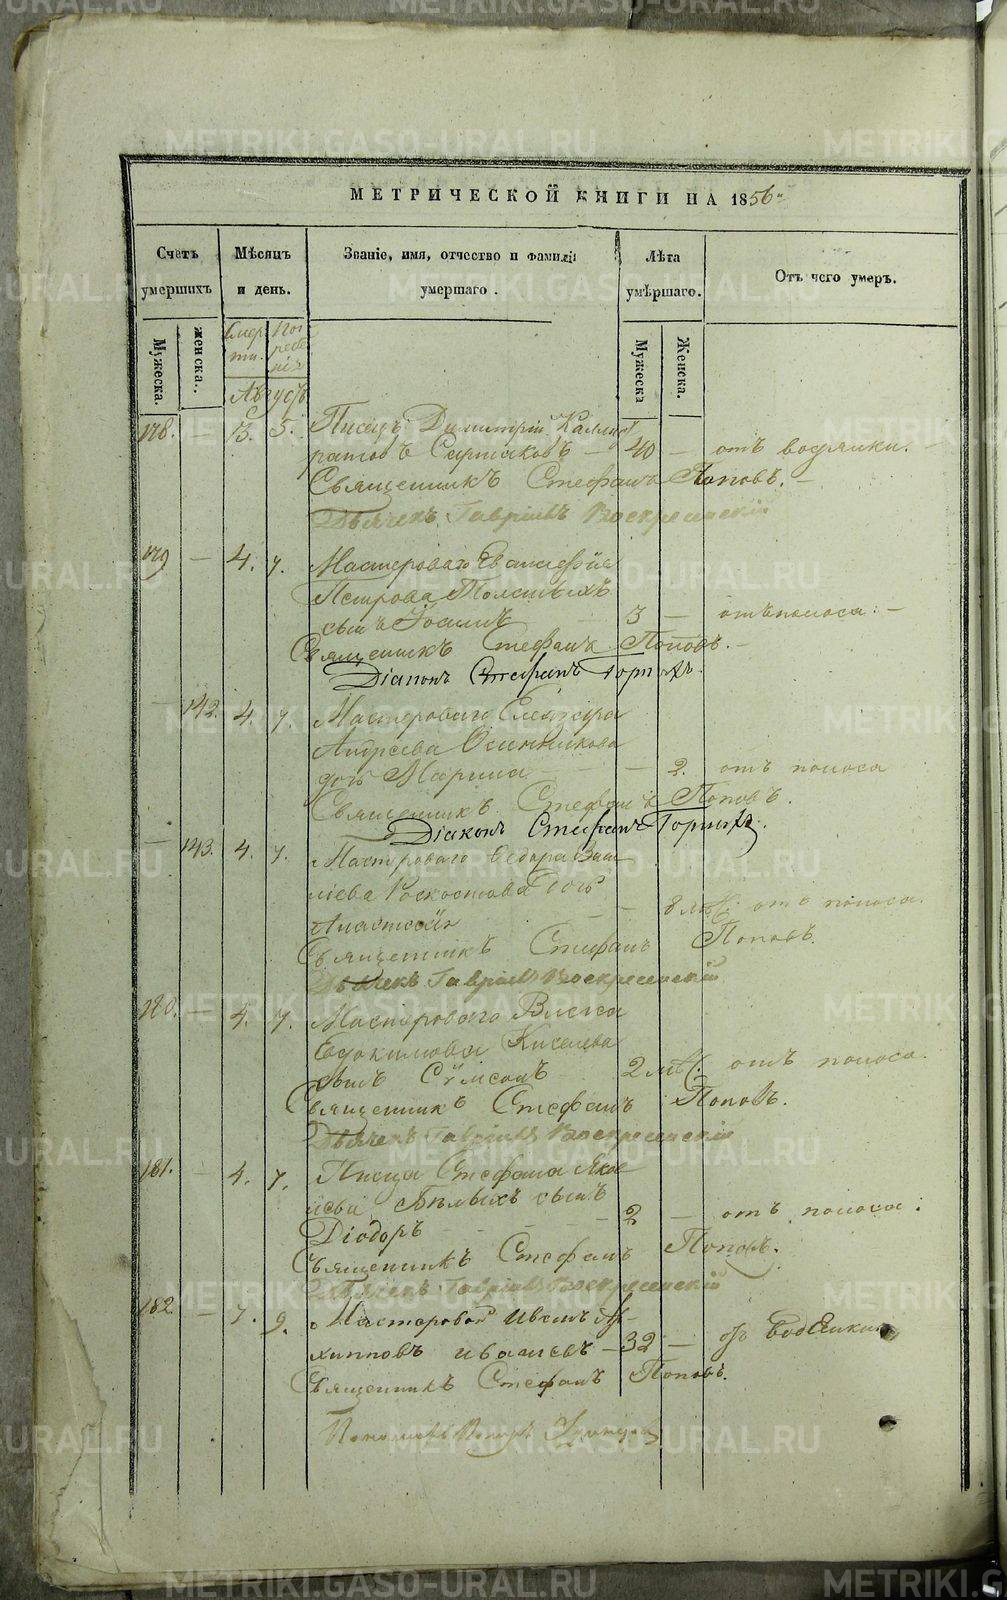 МЕТРИЧЕСКОЙ КНИГИ НА 1856
Счетъ умершихъ
Мѣсяцъ и день.
Званіе, имя, отчество и фамилія умершаго.
Лѣта умѣршаго.
Отъ чего умеръ.
Мужеска.
женска.
Смерти.
Погребенія
Мужеска
Женска.
Августъ
178. — 3. 5. Писецъ Димитрій Каллист
ратовъ — 40 — отъ водянки. —
Священникъ Стефанъ Поповъ. —
Дьячекъ Гавріилъ Воскресенскій
179 — 4. 7. Мастероваго
Петрова Толстыхъ
сынъ Іоаннъ 3 — отъ поноса. —
Священникъ Стефанъ Поповъ. —
Діаконъ Стефанъ
— 142. 4. 7. Мастероваго Елеазара
Андреева Осинникова
дочь Марина — — 2. отъ поноса
Священникъ Стефанъ Поповъ.
Діаконъ Стефанъ
— 143. 4. 7. Мастероваго Ѳедора Васи
лiева дочь
Анастасія — — 8 отъ поноса.
Священникъ Стефанъ Поповъ.
Дьячекъ Гавріилъ Воскресенскій
180. — 4. 7. Мастероваго
Евдокимова Киселева
сынъ Сѵмеонъ 2 отъ поноса.
Священникъ Стефанъ Поповъ.
Дьячекъ Гавріилъ Воскресенскій
181. — 4. 7. Писца Стефана Яков
Бѣлыхъ сынъ
Діодоръ — — — 2 — отъ поноса.
Священникъ Стефанъ Поповъ.
Дьячекъ Гавріилъ Воскресенскій
182. — 7. 9. Мастеровой Иванъ Ар-
хипповъ — 32 — отъ водянки
Священникъ Стефанъ Поповъ.
Петръ
METRIKI.GASO-URAL.RU